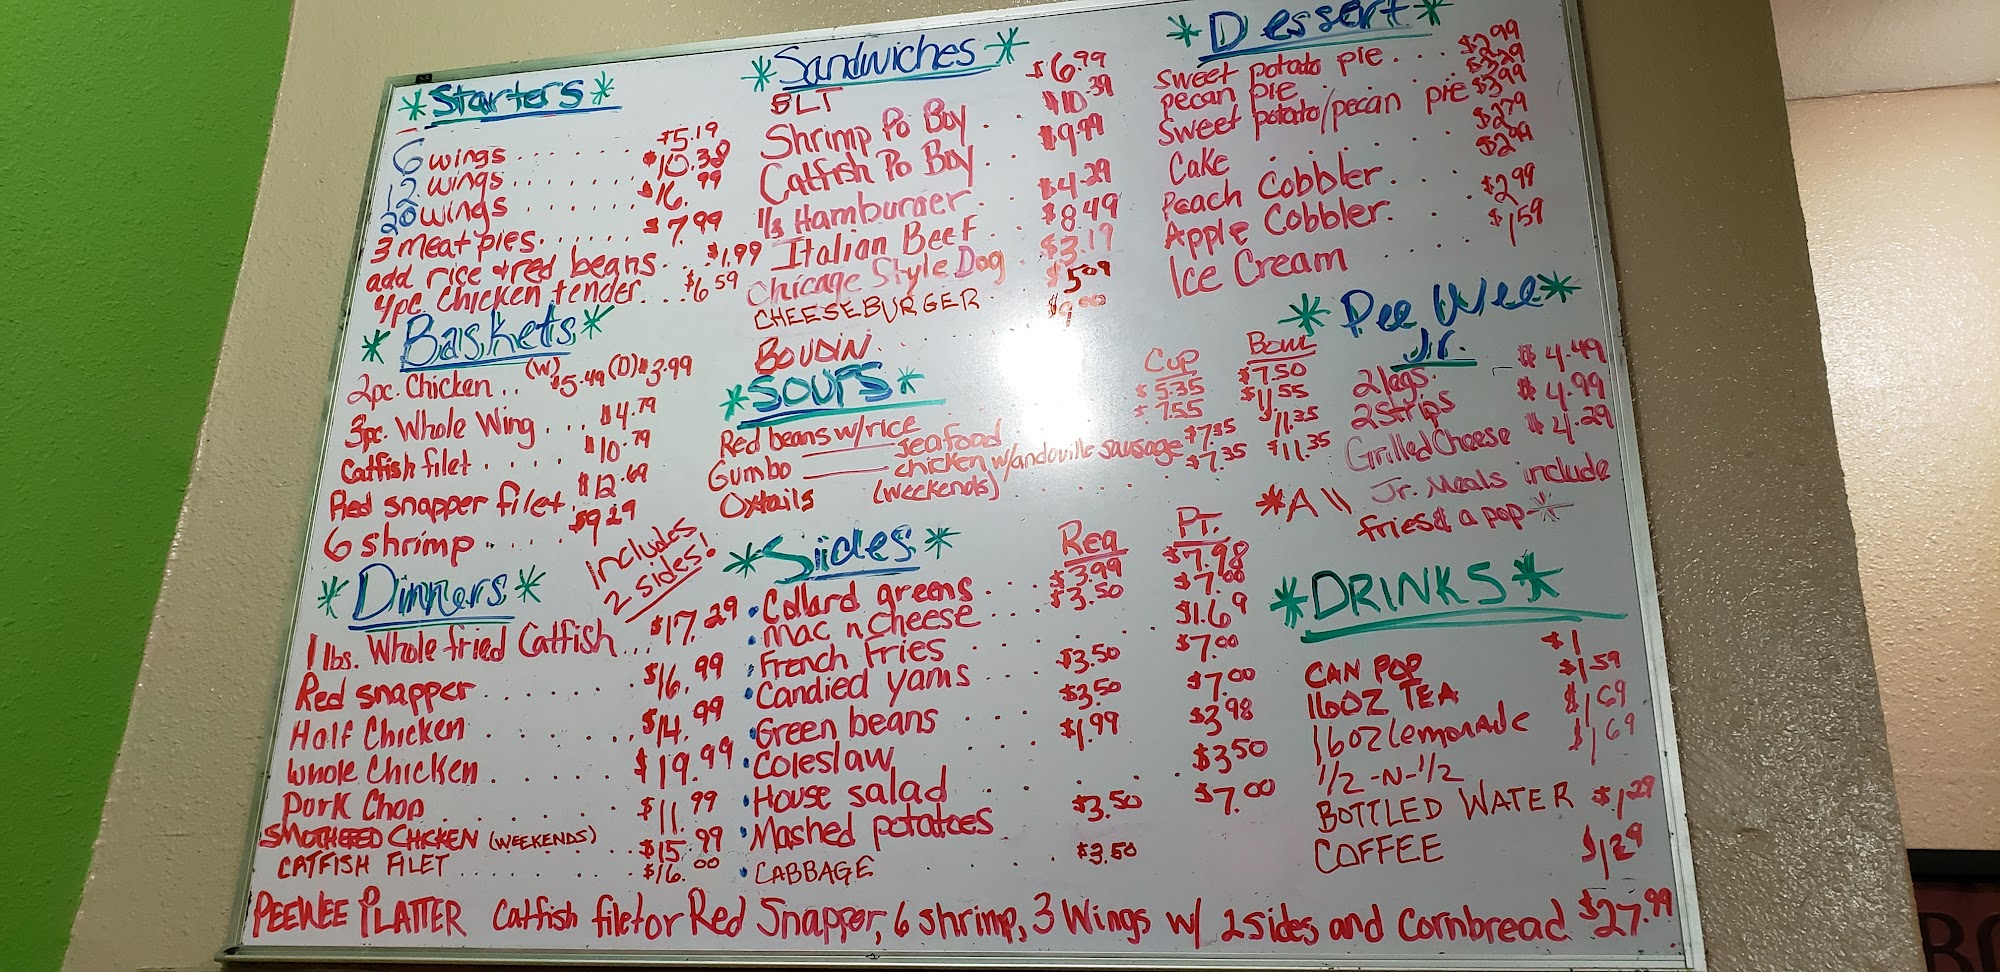 *Starters*
6 wings....... $5.19
12 wings....... $10.38
20 wings...... $16.99
3 meat pies....... $7.99
add rice & red beans... $1.99
4pc. chicken tender... $6.59
*Baskets*
2pc. Chicken .. (W) $5.49 (D) $3.99
3pc. Whole Wing ... $4.79
Catfish filet ..... $10.79
Red snapper filet. $12.69
6 shrimp..... $9.29
*Dinners*
includes
2 sides!
1 lbs. Whole fried Catfish... $17.29
Red snapper....... $16.99
Half Chicken ....... $14.99
Whole Chicken ...... $19.99
Pork Chop ....... $11.99
SMOTHERED CHICKEN (WEEKENDS) .. $15.99
CATFISH FILET .......... $16.00
*Sandwiches*
BLT $6.99
Shrimp Po Boy.. $10.39
Catfish Po Boy .. $9.99
1/3 Hamburger.... $4.29
Italian Beef ... $8.49
Chicago Style Dog . $3.19
CHEESEBURGER .. $5.09
BOUDIN....... $9.00
*SOUPS*
Cup Bowl
Red beans w/rice $5.35 $7.50
Gumbo seafood $7.55 $11.55
chicken w/andoville sausage $7.35 11.35
Oxtails (weekends) ..... $7.35 $11.35
*Sides*
Reg PT.
• Collard greens. .. $3.99 $7.98
• Mac n Cheese .. $3.50 $7.00
• French Fries ..... $1.69
• Candied yams ... $3.50 $7.00
• Green beans .... $3.50 $7.00
• Coleslaw .... $1.99 $3.98
• House salad ..... $3.50
• Mashed potatoes .. $3.50 $7.00
• CABBAGE ..... $3.50
*Dessert*
Sweet potato pie... $2.99
pecan pie ..... $3.29
Sweet potato/pecan pie $3.99
Cake ....... $2.79
Peach Cobbler.... $2.99
Apple Cobbler.... $2.99
Ice Cream .... $1.59
*Pee Wee*
Jr.
2 legs. $4.49
2 Strips $4.99
Grilled Cheese $4.29
*All Jr. Meals include
fries & a pop*
*DRINKS*
CAN POP $1
16OZ TEA $1.59
16oz Lemonade $1.69
1/2-N-1/2 $1.69
BOTTLED WATER $1.29
COFFEE $1.29
PEEWEE PLATTER Catfish filet or Red Snapper, 6 shrimp, 3 Wings w/ 2 sides and Cornbread $27.99